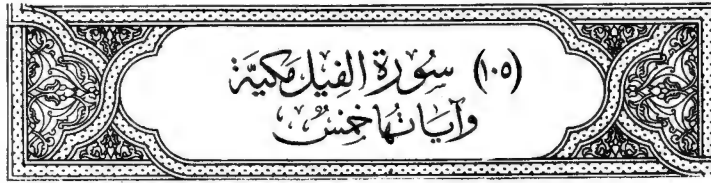 (١٠٥) سُورَة الفِيل مَكيَّة
وَآيَاتُهَا خَمْسٌ